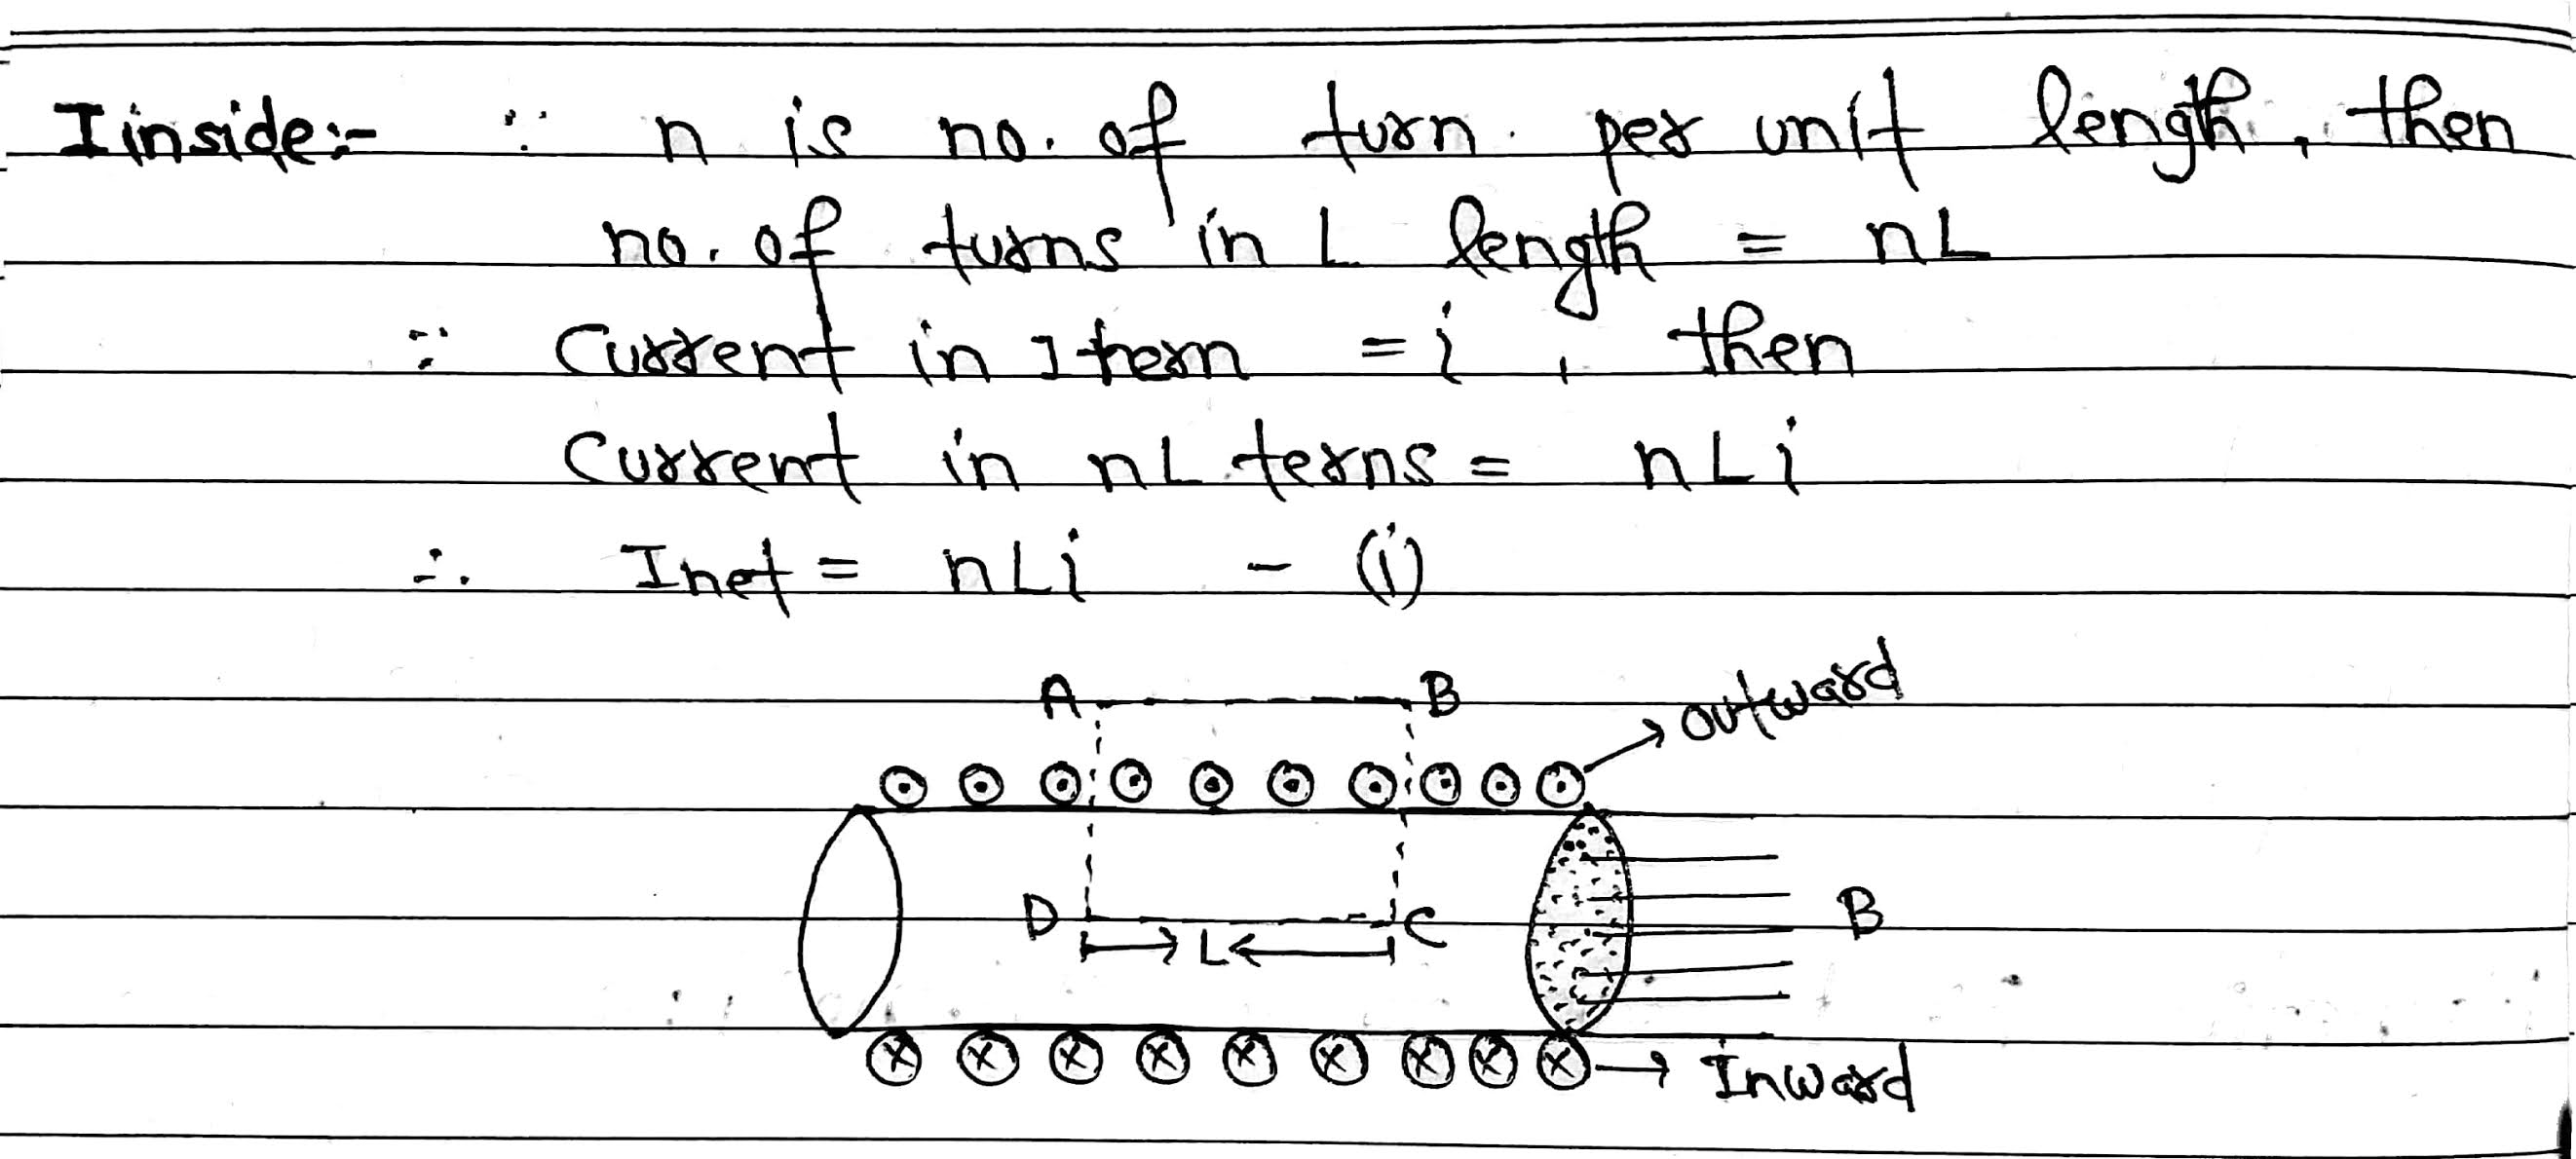 I inside:- ∵ n is no. of turn per unit lengh, then
no. of turns in L length = nL
∵ Current in 1 tern = i, then
Current in nL terns = nLi
∴ Inet = nLi - (i)
A B outward
D C B
L
Inward